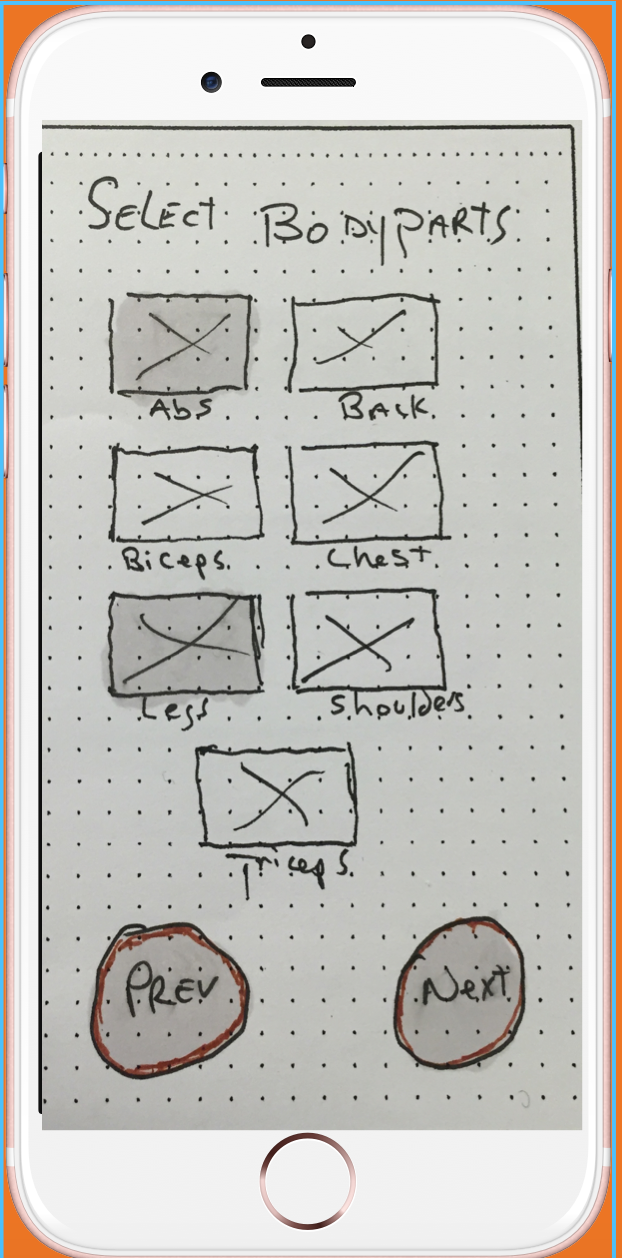 SELECT BODYPARTS
Abs
BACK
Biceps
Chest
Legs
Shoulders
Triceps
PREV
Next